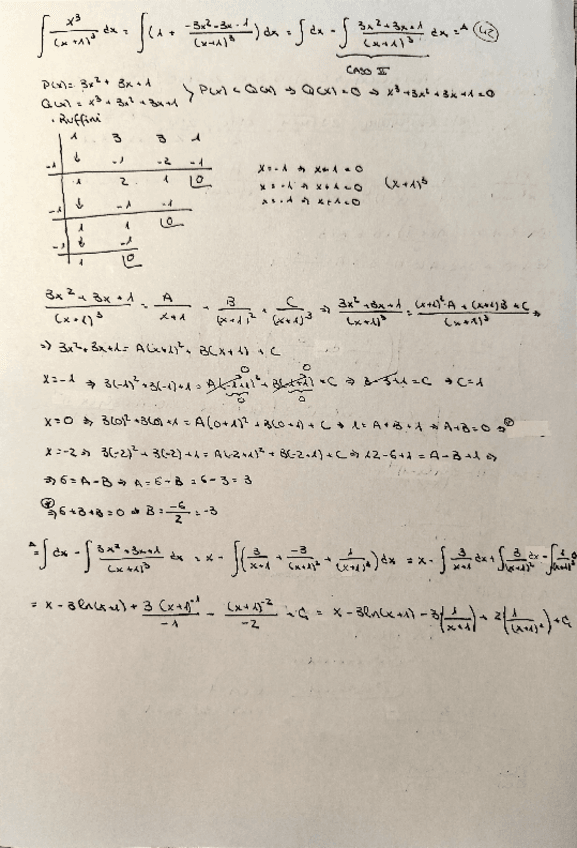 ∫ x³/(x+1)³ dx = ∫(1 + (-3x²-3x-1)/(x+1)³) dx = ∫dx - ∫ (3x²+3x+1)/(x+1)³ dx = * (42)
CASO II
P(x) = 3x² + 3x + 1
Q(x) = x³ + 3x² + 3x + 1 } P(x) < Q(x) ⇒ Q(x) = 0 ⇒ x³ + 3x² + 3x + 1 = 0
· Ruffini
1 3 3 1
-1 ↓ -1 -2 -1
1 2 1 0
-1 ↓ -1 -1
1 1 0
-1 ↓ -1
1 0
x = -1 ⇒ x+1 = 0
x = -1 ⇒ x+1 = 0 (x+1)³
x = -1 ⇒ x+1 = 0
(3x² + 3x + 1)/(x+1)³ = A/(x+1) + B/(x+1)² + C/(x+1)³ ⇒ (3x² + 3x + 1)/(x+1)³ = ((x+1)²·A + (x+1)B + C)/(x+1)³ ⇒
⇒ 3x² + 3x + 1 = A(x+1)² + B(x+1) + C
x = -1 ⇒ 3(-1)² + 3(-1) + 1 = A(-1+1)² + B(-1+1) + C ⇒ 3-3+1 = C ⇒ C = 1
x = 0 ⇒ 3(0)² + 3(0) + 1 = A(0+1)² + B(0+1) + C ⇒ 1 = A + B + 1 ⇒ A+B = 0 ⇒
x = -2 ⇒ 3(-2)² + 3(-2) + 1 = A(-2+1)² + B(-2+1) + C ⇒ 12-6+1 = A-B+1 ⇒
⇒ 6 = A-B ⇒ A = 6+B = 6-3 = 3
⇒ 6+B+B = 0 ⇒ B = -6/2 = -3
* = ∫dx - ∫ (3x²+3x+1)/(x+1)³ dx = x - ∫(3/(x+1) + -3/(x+1)² + 1/(x+1)³) dx = x - ∫ 3/(x+1) dx + ∫ 3/(x+1)² dx - ∫
= x - 3ln(x+1) + 3 (x+1)⁻¹/-1 - (x+1)⁻²/-2 + C = x - 3ln(x+1) - 3(1/(x+1)) + 2(1/(x+1)²) + C